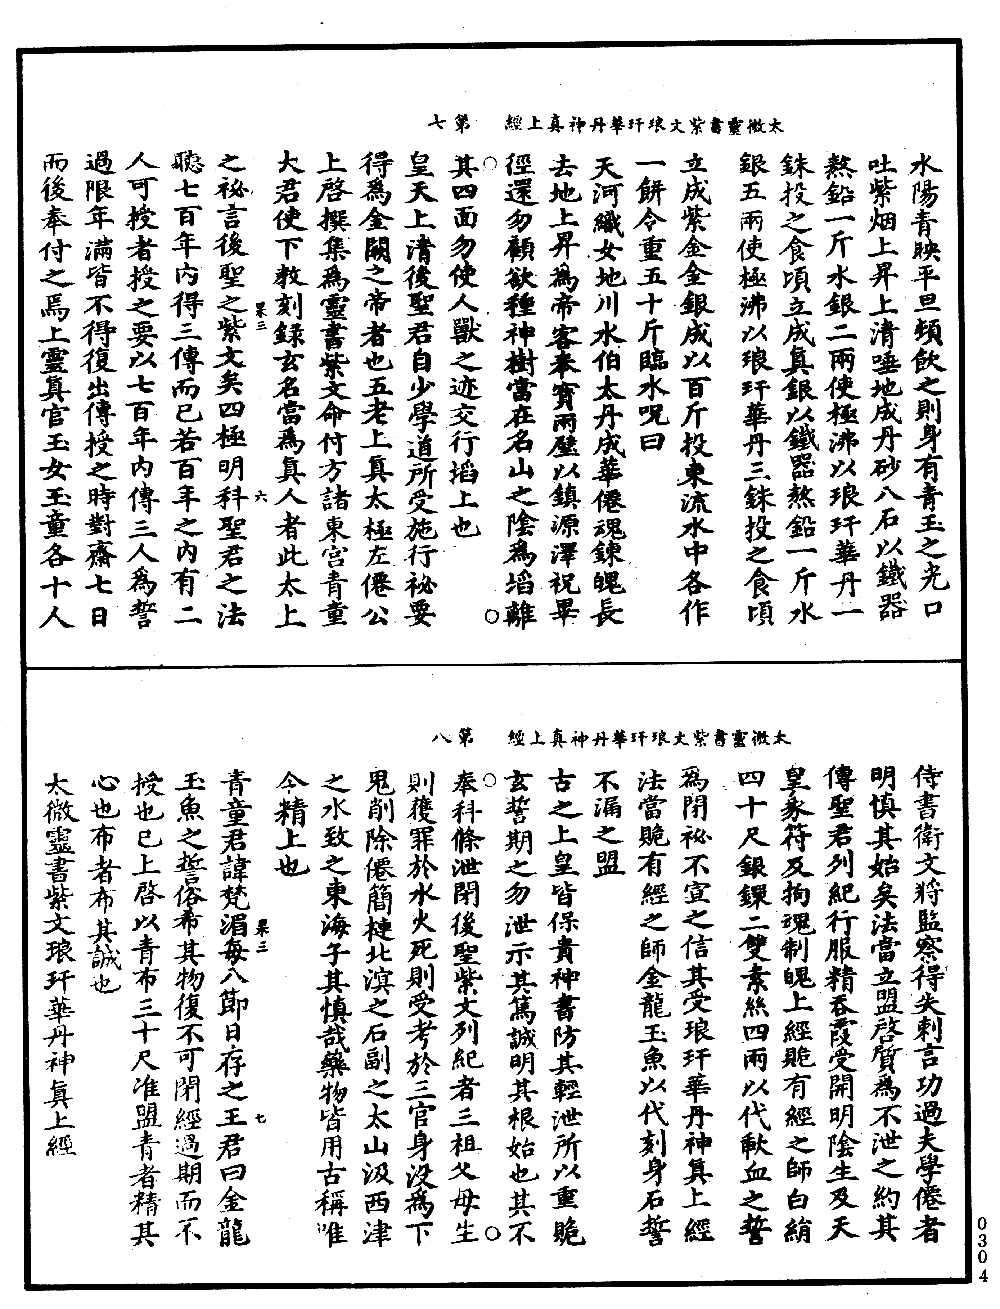 太微靈書紫文琅玕華丹神真上經 第七
水陽青映平旦頓飲之則身有青玉之光口
吐紫烟上昇上清唾地成丹砂八石以鐵器
熬鉛一斤水銀二兩使極沸以琅玕華丹一
銖投之食頃立成真銀以鐵器熬鉛一斤水
銀五兩使極沸以琅玕華丹三銖投之食頃
立成紫金金銀成以百斤投東流水中各作
一餅令重五十斤臨水呪曰
天河織女地川水伯太丹成華僊魂鍊魄長
去地上昇為帝客奉寶兩璧以鎮源澤祝畢
徑還勿顧欲種神樹當在名山之陰為埳離
其四面勿使人獸之迹交行埳上也
皇天上清後聖君自少學道所受施行祕要
得為金闕之帝者也五老上真太極左僊公
上啓撰集為靈書紫文命付方諸東宮青童
大君使下教刻録玄名當為真人者此太上
杲三 六
之祕言後聖之紫文矣四極明科聖君之法
聽七百年內得三傳而已若百年之內有二
人可授者授之要以七百年內傳三人為誓
過限年滿皆不得復出傳授之時對齋七日
而後奉付之焉上靈真官玉女玉童各十人
太微靈書紫文琅玕華丹神真上經 第八
侍書衛文將監察得失刺言功過夫學僊者
明慎其始矣法當立盟啓質為不泄之約其
傳聖君列紀行服精吞霞受開明陰生及天
皇象符及拘魂制魄上經賫有經之師白絹
四十尺銀鐶二雙素絲四兩以代軟血之誓
為閉祕不宣之信其受琅玕華丹神真上經
法當賫有經之師金龍玉魚以代刻身石誓
不漏之盟
古之上皇皆保貴神書防其輕泄所以重賫
玄誓期之勿泄示其篤誠明其根始也其不
奉科條泄閉後聖紫文列紀者三祖父母生
則獲罪於水火死則受考於三官身沒為下
鬼削除僊簡槤北濱之石副之太山汲西津
之水致之東海子其慎哉藥物皆用古稱唯
令精上也
杲三 七
青童君諱梵湄每八節日存之王君曰金龍
玉魚之誓俗希其物復不可閉經過期而不
授也已上啓以青布三十尺准盟青者精其
心也布者布其誠也
太微靈書紫文琅玕華丹神真上經
0304